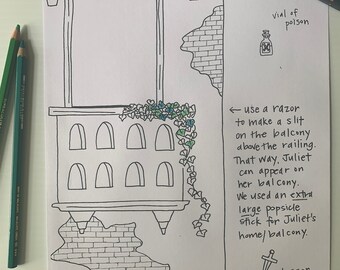 vial of
poison
← use a razor
to make a slit
on the balcony
above the railing.
That way, Juliet
can appear on
her balcony.
We used an extra
large popsicle
stick for Juliet's
home/balcony.